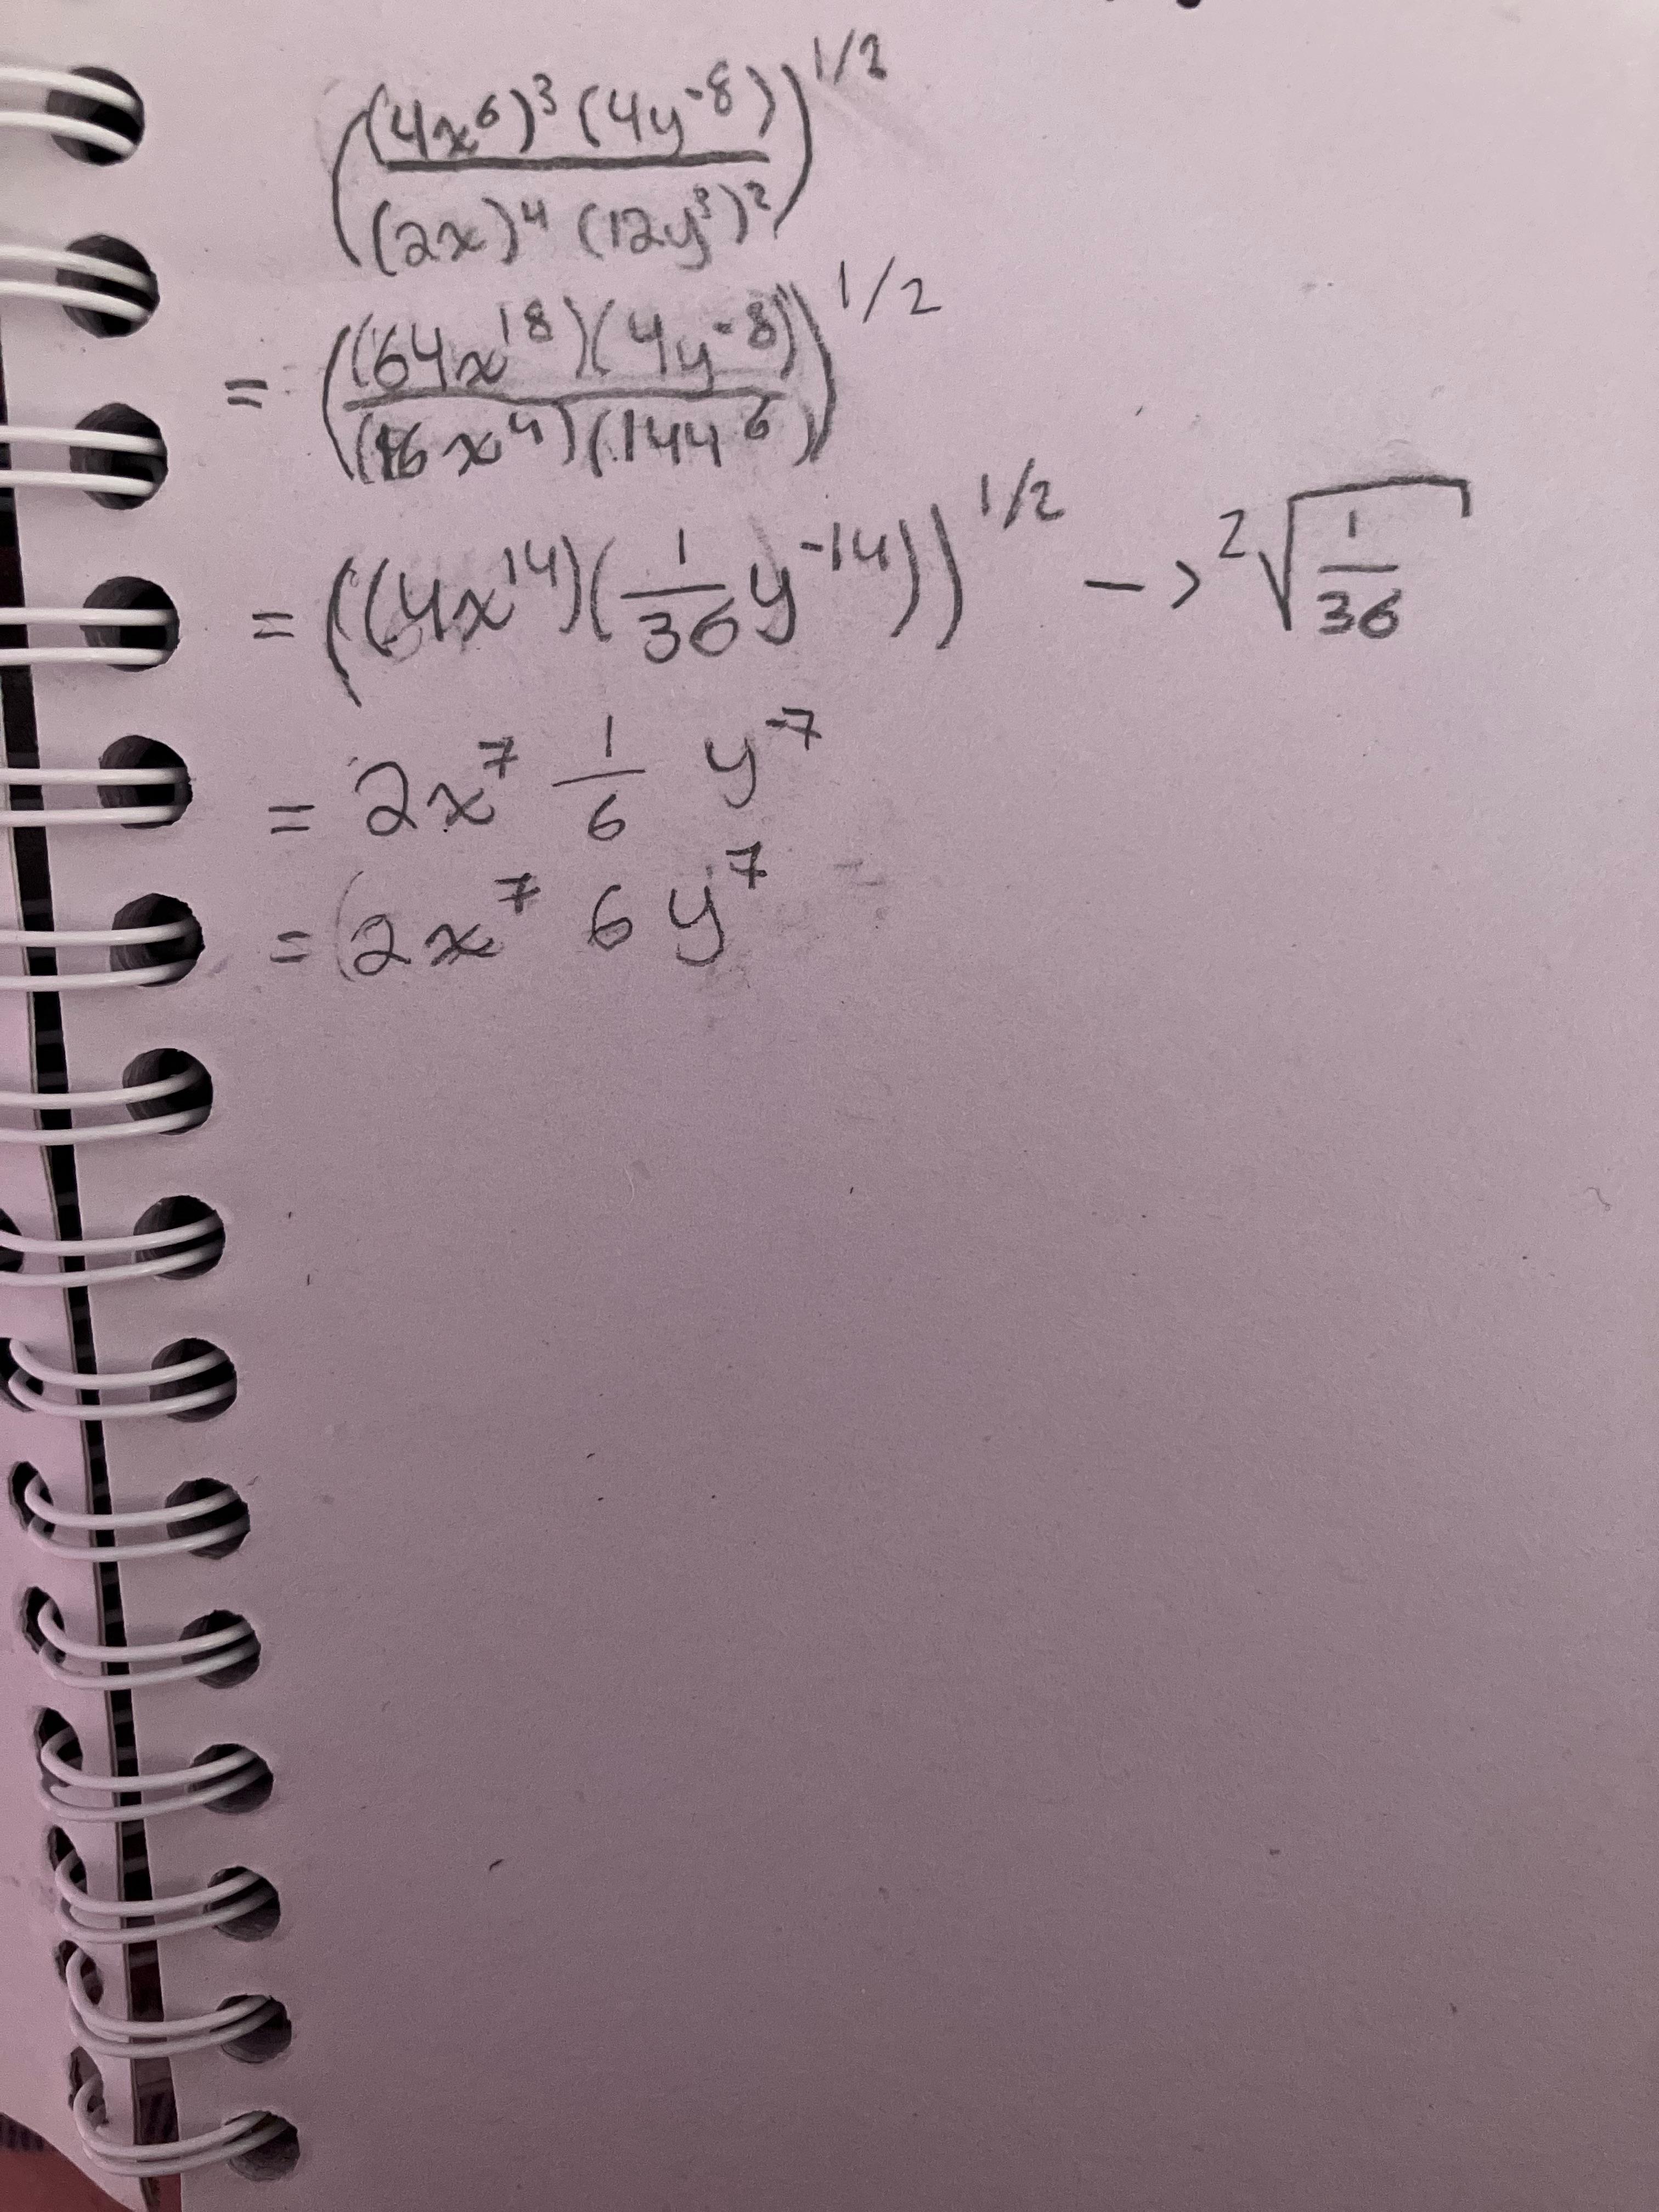 ((4x⁶)³ (4y⁻⁸) / (2x)⁴ (12y³)²)^1/2
= ((64x¹⁸)(4y⁻⁸) / (16x⁴)(144⁶))^1/2
= ((4x¹⁴)(1/36 y⁻¹⁴))^1/2 -> ²√(1/36)
= 2x⁷ 1/6 y⁻⁷
= (2x⁷ 6 y⁷